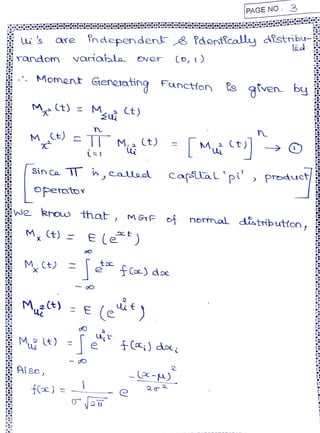 PAGE NO. 3
Ui's are independent & identically distributed
random variable over (0, 1)
∴ Moment Generating Function is given by
M_χ²(t) = M_Σui²(t)
M_χ²(t) = n∏i=1 M_ui²(t) = [M_ui²(t)]^n → ①
[since ∏ is called capital 'pi', product
operator
We know that, MGF of normal distribution,
M_x(t) = E(e^xt)
M_x(t) = ∫_-∞^∞ e^tx f(x) dx
M_ui²(t) = E(e^ui²t)
M_ui²(t) = ∫_-∞^∞ e^ui²t f(xi) dxi
Also,
f(x) = 1/σ√2π e^-(x-μ)²/2σ²